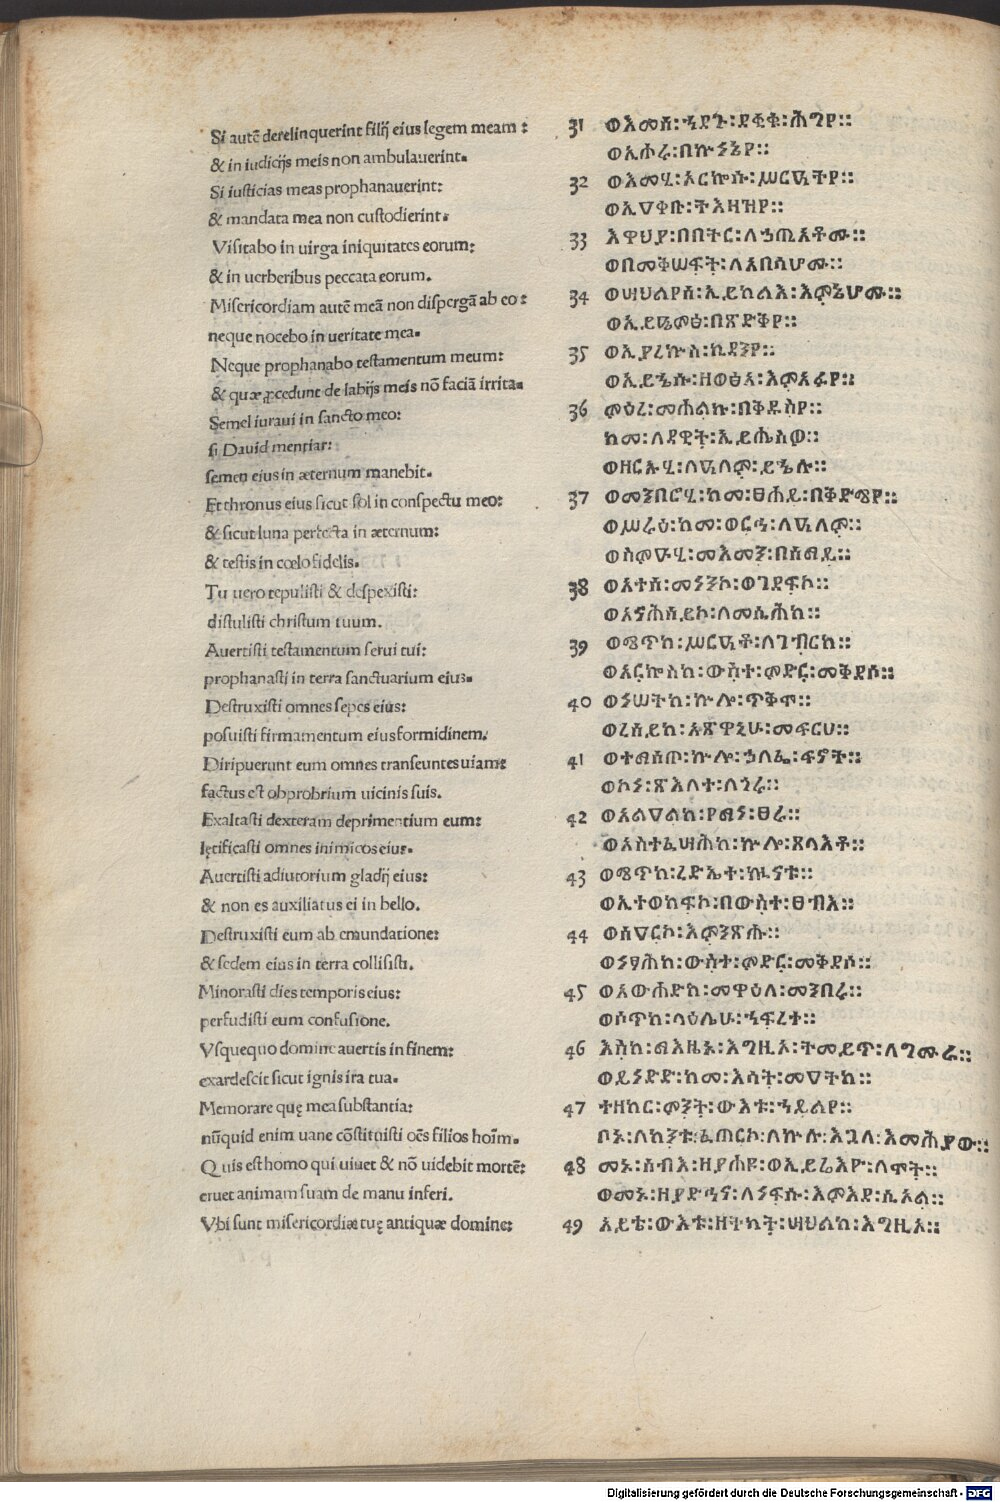 Si autē derelinquerint filij eius legem meam:
& in iudicijs meis non ambulauerint.
Si iusticias meas prophanauerint:
& mandata mea non custodierint.
Visitabo in uirga iniquitates eorum:
& in uerberibus peccata eorum.
Misericordiam autē meā non dispergā ab eo:
neque nocebo in ueritate mea.
Neque prophanabo testamentum meum:
& quæ ꝓcedunt de labijs meis nō faciā irrita.
Semel iuraui in sancto meo:
si Dauid mentiar:
semen eius in æternum manebit.
Et thronus eius sicut sol in conspectu meo:
& sicut luna perfecta in æternum:
& testis in cœlo fidelis.
Tu uero repulisti & despexisti:
distulisti christum tuum.
Auertisti testamentum serui tui:
prophanasti in terra sanctuarium eius.
Destruxisti omnes sepes eius:
posuisti firmamentum eius formidinem.
Diripuerunt eum omnes transeuntes uiam:
factus est obprobrium uicinis suis.
Exaltasti dexteram deprimentium eum:
lętificasti omnes inimicos eius.
Auertisti adiutorium gladij eius:
& non es auxiliatus ei in bello.
Destruxisti eum ab emundatione:
& sedem eius in terra collisisti.
Minorasti dies temporis eius:
perfudisti eum confusione.
Vsquequo domine auertis in finem:
exardescit sicut ignis ira tua.
Memorare quę mea substantia:
nūquid enim uane cōstituisti oēs filios hoīm.
Quis est homo qui uiuet & nō uidebit mortē:
eruet animam suam de manu inferi.
Vbi sunt misericordiæ tuę antiquæ domine:
31 ወእመሰ፡ኀደጉ፡ደቂቁ፡ሕግየ።
ወኢሖሩ፡በኵነኔየ።
32 ወእመሂ፡አርኰሱ፡ሥርዓትየ።
ወኢዐቀቡ፡ትእዛዝየ።
33 እዋህያ፡በበትር፡ለኃጢአቶሙ።
ወበመቅሠፍት፡ለአበሳሆሙ።
34 ወሣህልየሰ፡ኢይከልእ፡እምኔሆሙ።
ወኢይዔምፅ፡በጽድቅየ።
35 ወኢያረኵስ፡ኪዳንየ።
ወኢይኄሱ፡ዘወፅአ፡እምአፉየ።
36 ምዕረ፡መሐልኩ፡በቅዱስየ።
ከመ፡ለዳዊት፡ኢይሔስዎ።
ወዘርኡሂ፡ለዓለም፡ይኄሉ።
37 ወመንበሩሂ፡ከመ፡ፀሐይ፡በቅድሜየ።
ወሥሩዕ፡ከመ፡ወርኅ፡ለዓለም።
ወስምዑሂ፡መእመን፡በሰማይ።
38 ወአተሰ፡መነንኮ፡ወገደፍኮ።
ወአናሕሰይኮ፡ለመሲሕከ።
39 ወሜጥከ፡ሥርዓቶ፡ለገብርከ።
ወአርኰስከ፡ውስተ፡ምድር፡መቅደሶ።
40 ወነሠትከ፡ኵሎ፡ጥቅሞ።
ወረሰይከ፡አጽዋኒሁ፡መፍርህ።
41 ወተማሰጦ፡ኵሎ፡ኃላፌ፡ፍኖት።
ወኮነ፡ጽእለተ፡ለጎሩ።
42 ወአልዐልከ፡የማነ፡ፀሩ።
ወአስተፈሣሕከ፡ኵሎ፡ጸላእቶ።
43 ወሜጥከ፡ረድኤተ፡ኲናቱ።
ወኢተወከፍኮ፡በውስተ፡ፀብእ።
44 ወሰዐርኮ፡እምንጽሑ።
ወነፃሕከ፡ውስተ፡ምድር፡መቅደሶ።
45 ወአውሐድከ፡መዋዕለ፡መንበሩ።
ወሶጥከ፡ላዕሌሁ፡ኀፍረተ።
46 እስከ፡ማእዜኑ፡እግዚኦ፡ትመይጥ፡ለግሙራ።
ወይነድድ፡ከመ፡እሳት፡መዐትከ።
47 ተዘከር፡ምንት፡ውእቱ፡ኀይልየ።
ቦኑ፡ለከንቱ፡ፈጠርኮ፡ለኵሉ፡እጓለ፡እመሕያው።
48 መኑ፡ሰብእ፡ዘያሐዩ፡ወኢይሬእዮ፡ለሞት።
ወመኑ፡ዘያድኅና፡ለነፍሱ፡እምእደ፡ሲኦል።
49 አይቴ፡ውእቱ፡ዘትካት፡ሣህልከ፡እግዚኦ።
Digitalisierung gefördert durch die Deutsche Forschungsgemeinschaft - DFG